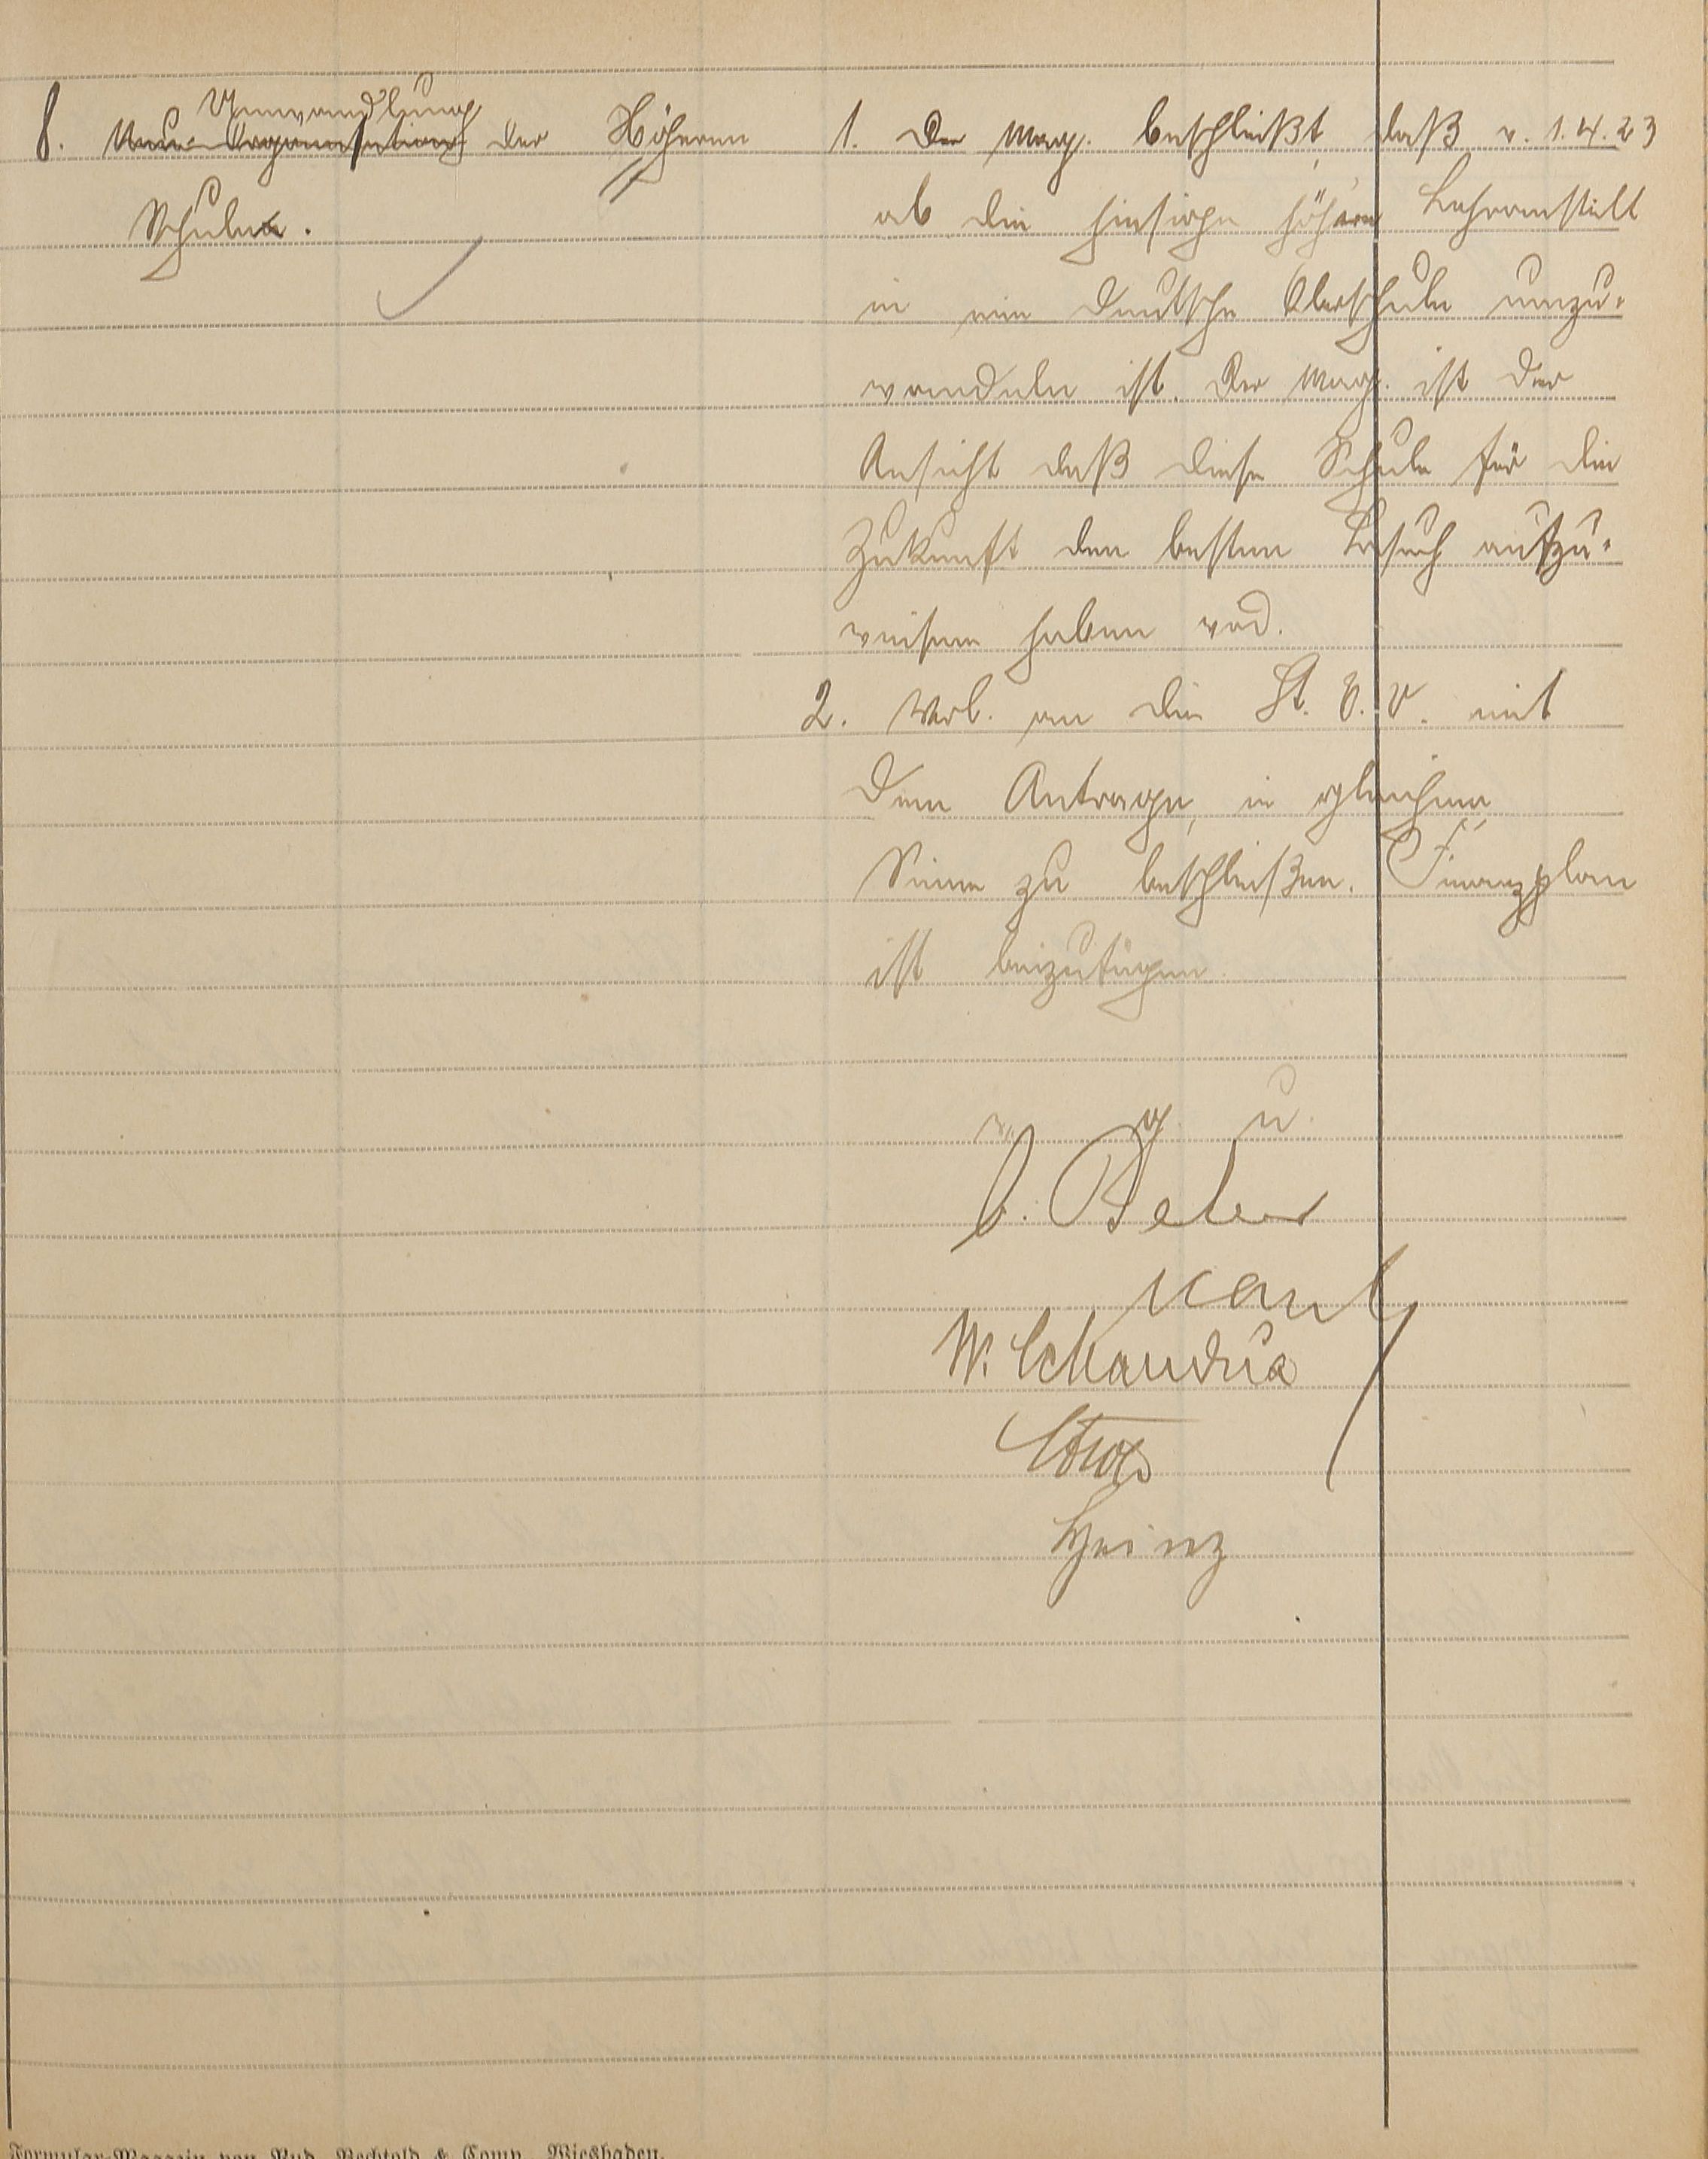 8. Umwandlung
Neu-Organisation der Höheren
Schulen.
1. Der Mag. beschließt, daß v. 1.4.23
ab die hiesige höhere Lehranstalt
in eine Deutsche Oberschule umzu-
wandeln ist. Der Mag. ist der
Ansicht daß diese Schule für die
Zukunft den besten Besuch aufzu-
weisen haben wird.
2. Vorl. an die St. V. V. mit
dem Antrage, in gleichem
Sinne zu beschließen. Finanzplan
ist beizufügen.
v. g. u.
Kaul
W. Schaudua
Heinz
Formular-Magazin von Rud. Bechtold & Comp. Wiesbaden.